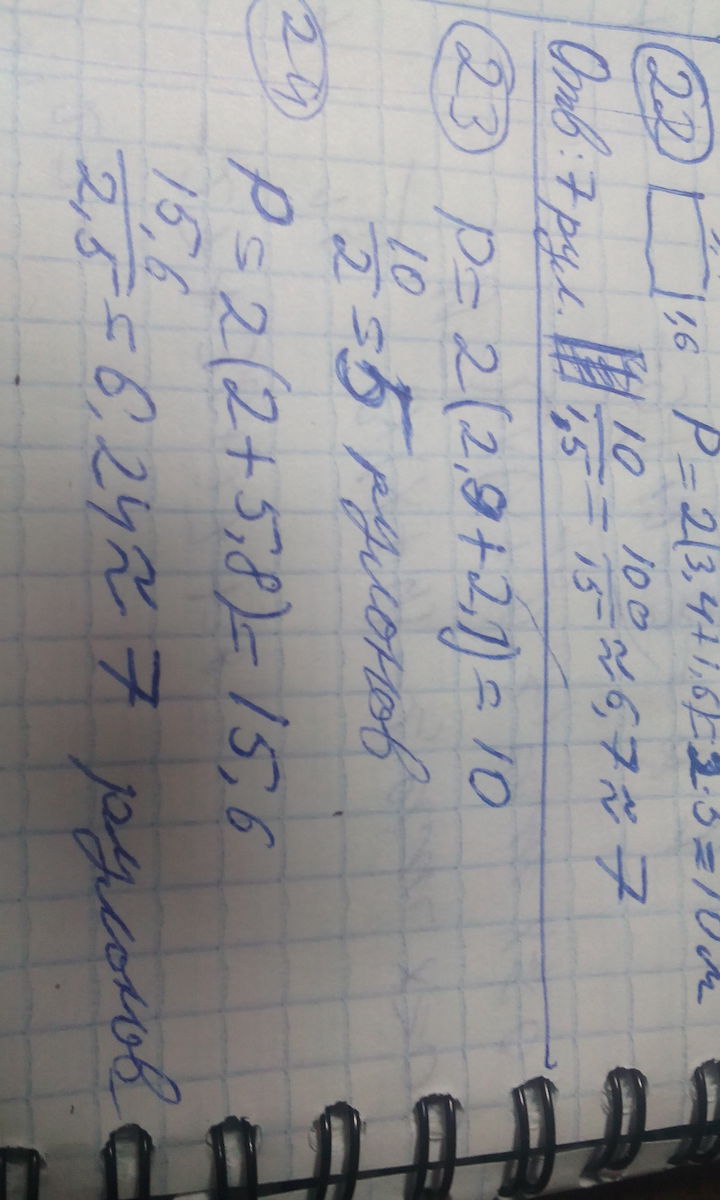 22 1,6 P = 2(3,4+1,6)=2·5=10 м
Отв: 7 рул. 10/1,5 = 100/15 ≈ 6,7 ≈ 7
23 P = 2(2,9+2,1) = 10
10/2 = 5 рулонов
24 P = 2(2+5,8) = 15,6
15,6/2,5 = 6,24 ≈ 7 рулонов